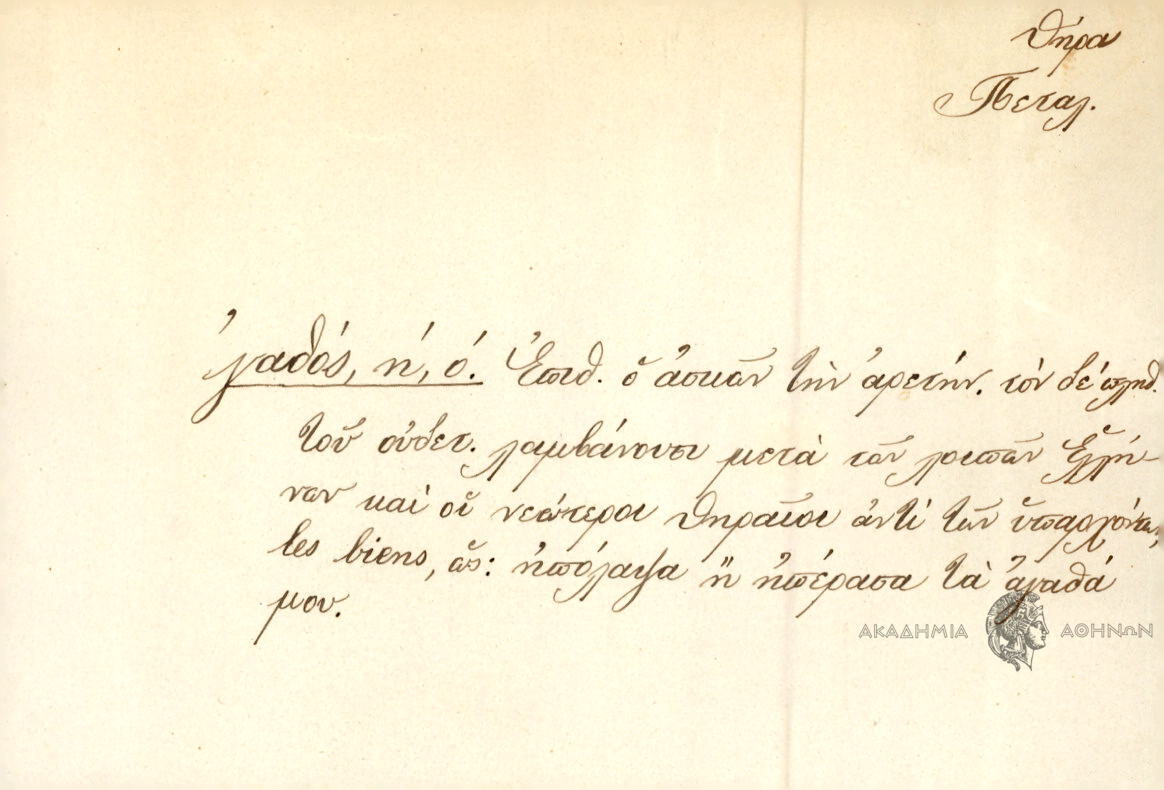 Θήρα
Πεταλ.
ἀγαθός, ή, ό. Ἐπιθ. ὁ ἀσκῶν τὴν ἀρετήν. τὸν δὲ πληθ.
τοῦ οὐδετ. λαμβάνουσι μετὰ τῶν λοιπῶν Ἑλλή-
νων καὶ οἱ νεώτεροι Θηραῖοι ἀντὶ τῶν ὑπαρχόντων,
les biens, ὡς: ἠπόλαψα ἢ ἠπέρασα τὰ ἀγαθά
μου.
ΑΚΑΔΗΜΙΑ ΑΘΗΝΩΝ